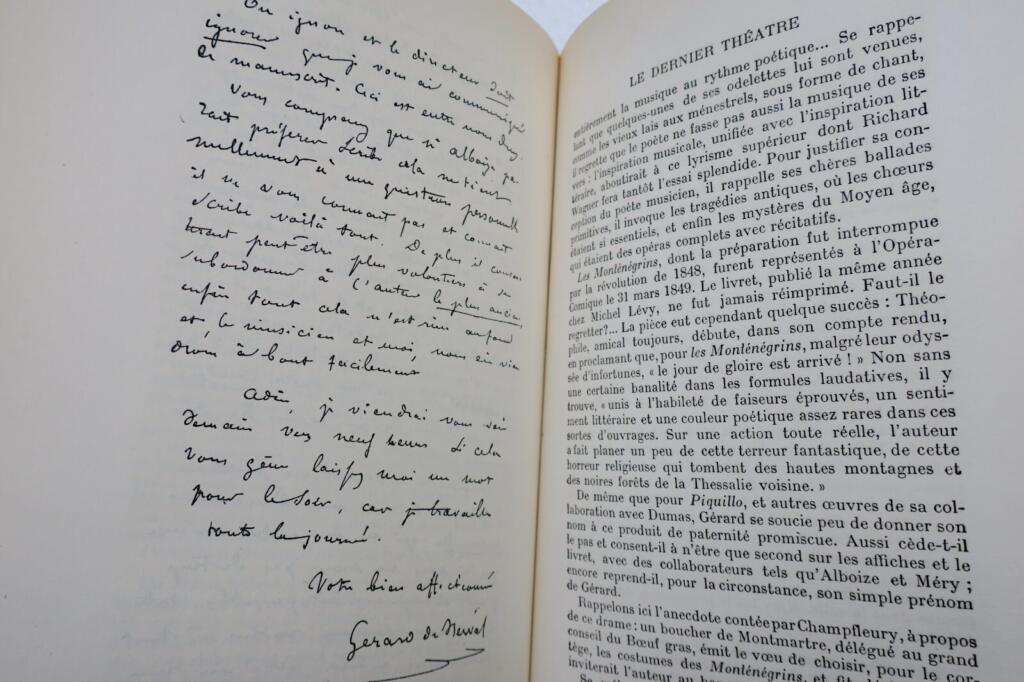 On ignore et le directeur doit
ignorer que je vous ai communiqué
le manuscrit. Ceci est entre nous deux.
Vous comprenez que si Alboize pa-
rait préférer Scribe cela ne tient
nullement à une question personnelle
il ne vous connait pas et connait
Scribe voilà tout. De plus il
peut être plus volontiers à se
subordonner à l'auteur le plus ancien
enfin tout cela n'est rien au fond
et, le musicien et moi, nous en vien
drons à bout facilement
Adieu, je viendrai vous voir
demain vers neuf heures si cela
vous gêne laissez moi un mot
pour le soir, car je travaille
toute la journée.
Votre bien affectionné
Gérard de Nerval
LE DERNIER THÉATRE
entièrement la musique au rythme poétique... Se rappe-
lant que quelques-unes de ses odelettes lui sont venues,
comme les vieux lais aux ménestrels, sous forme de chant,
il regrette que le poète ne fasse pas aussi la musique de ses
vers : l'inspiration musicale, unifiée avec l'inspiration lit-
téraire, aboutirait à ce lyrisme supérieur dont Richard
Wagner fera tantôt l'essai splendide. Pour justifier sa con-
ception du poète musicien, il rappelle ses chères ballades
primitives, il invoque les tragédies antiques, où les chœurs
étaient si essentiels, et enfin les mystères du Moyen âge,
qui étaient des opéras complets avec récitatifs.
Les Monténégrins, dont la préparation fut interrompue
par la révolution de 1848, furent représentés à l'Opéra-
Comique le 31 mars 1849. Le livret, publié la même année
chez Michel Lévy, ne fut jamais réimprimé. Faut-il le
regretter?... La pièce eut cependant quelque succès : Théo-
phile, amical toujours, débute, dans son compte rendu,
en proclamant que, pour les Monténégrins, malgré leur odys-
sée d'infortunes, « le jour de gloire est arrivé ! » Non sans
une certaine banalité dans les formules laudatives, il y
trouve, « unis à l'habileté de faiseurs éprouvés, un senti-
ment littéraire et une couleur poétique assez rares dans ces
sortes d'ouvrages. Sur une action toute réelle, l'auteur
a fait planer un peu de cette terreur fantastique, de cette
horreur religieuse qui tombent des hautes montagnes et
des noires forêts de la Thessalie voisine. »
De même que pour Piquillo, et autres œuvres de sa col-
laboration avec Dumas, Gérard se soucie peu de donner son
nom à ce produit de paternité promiscue. Aussi cède-t-il
le pas et consent-il à n'être que second sur les affiches et le
livret, avec des collaborateurs tels qu'Alboize et Méry ;
encore reprend-il, pour la circonstance, son simple prénom
de Gérard.
Rappelons ici l'anecdote contée par Champfleury, à propos
de ce drame : un boucher de Montmartre, délégué au grand
conseil du Bœuf gras, émit le vœu de choisir, pour le cor-
tège, les costumes des Monténégrins, et fit
inviterait l'auteur au